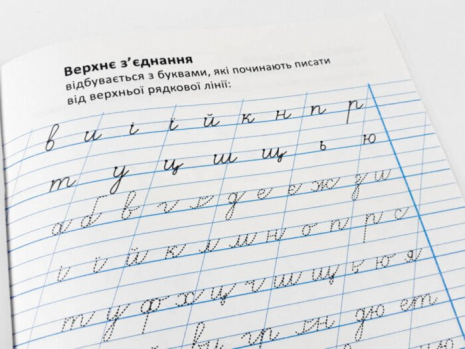 Верхнє з’єднання
відбувається з буквами, які починають писати
від верхньої рядкової лінії:
в и і ї й к н п р
т у ц ш щ ь ю
а б в г д е є ж з и
і ї й к л м н о п р с
т у ф х ц ч ш щ ь ю я